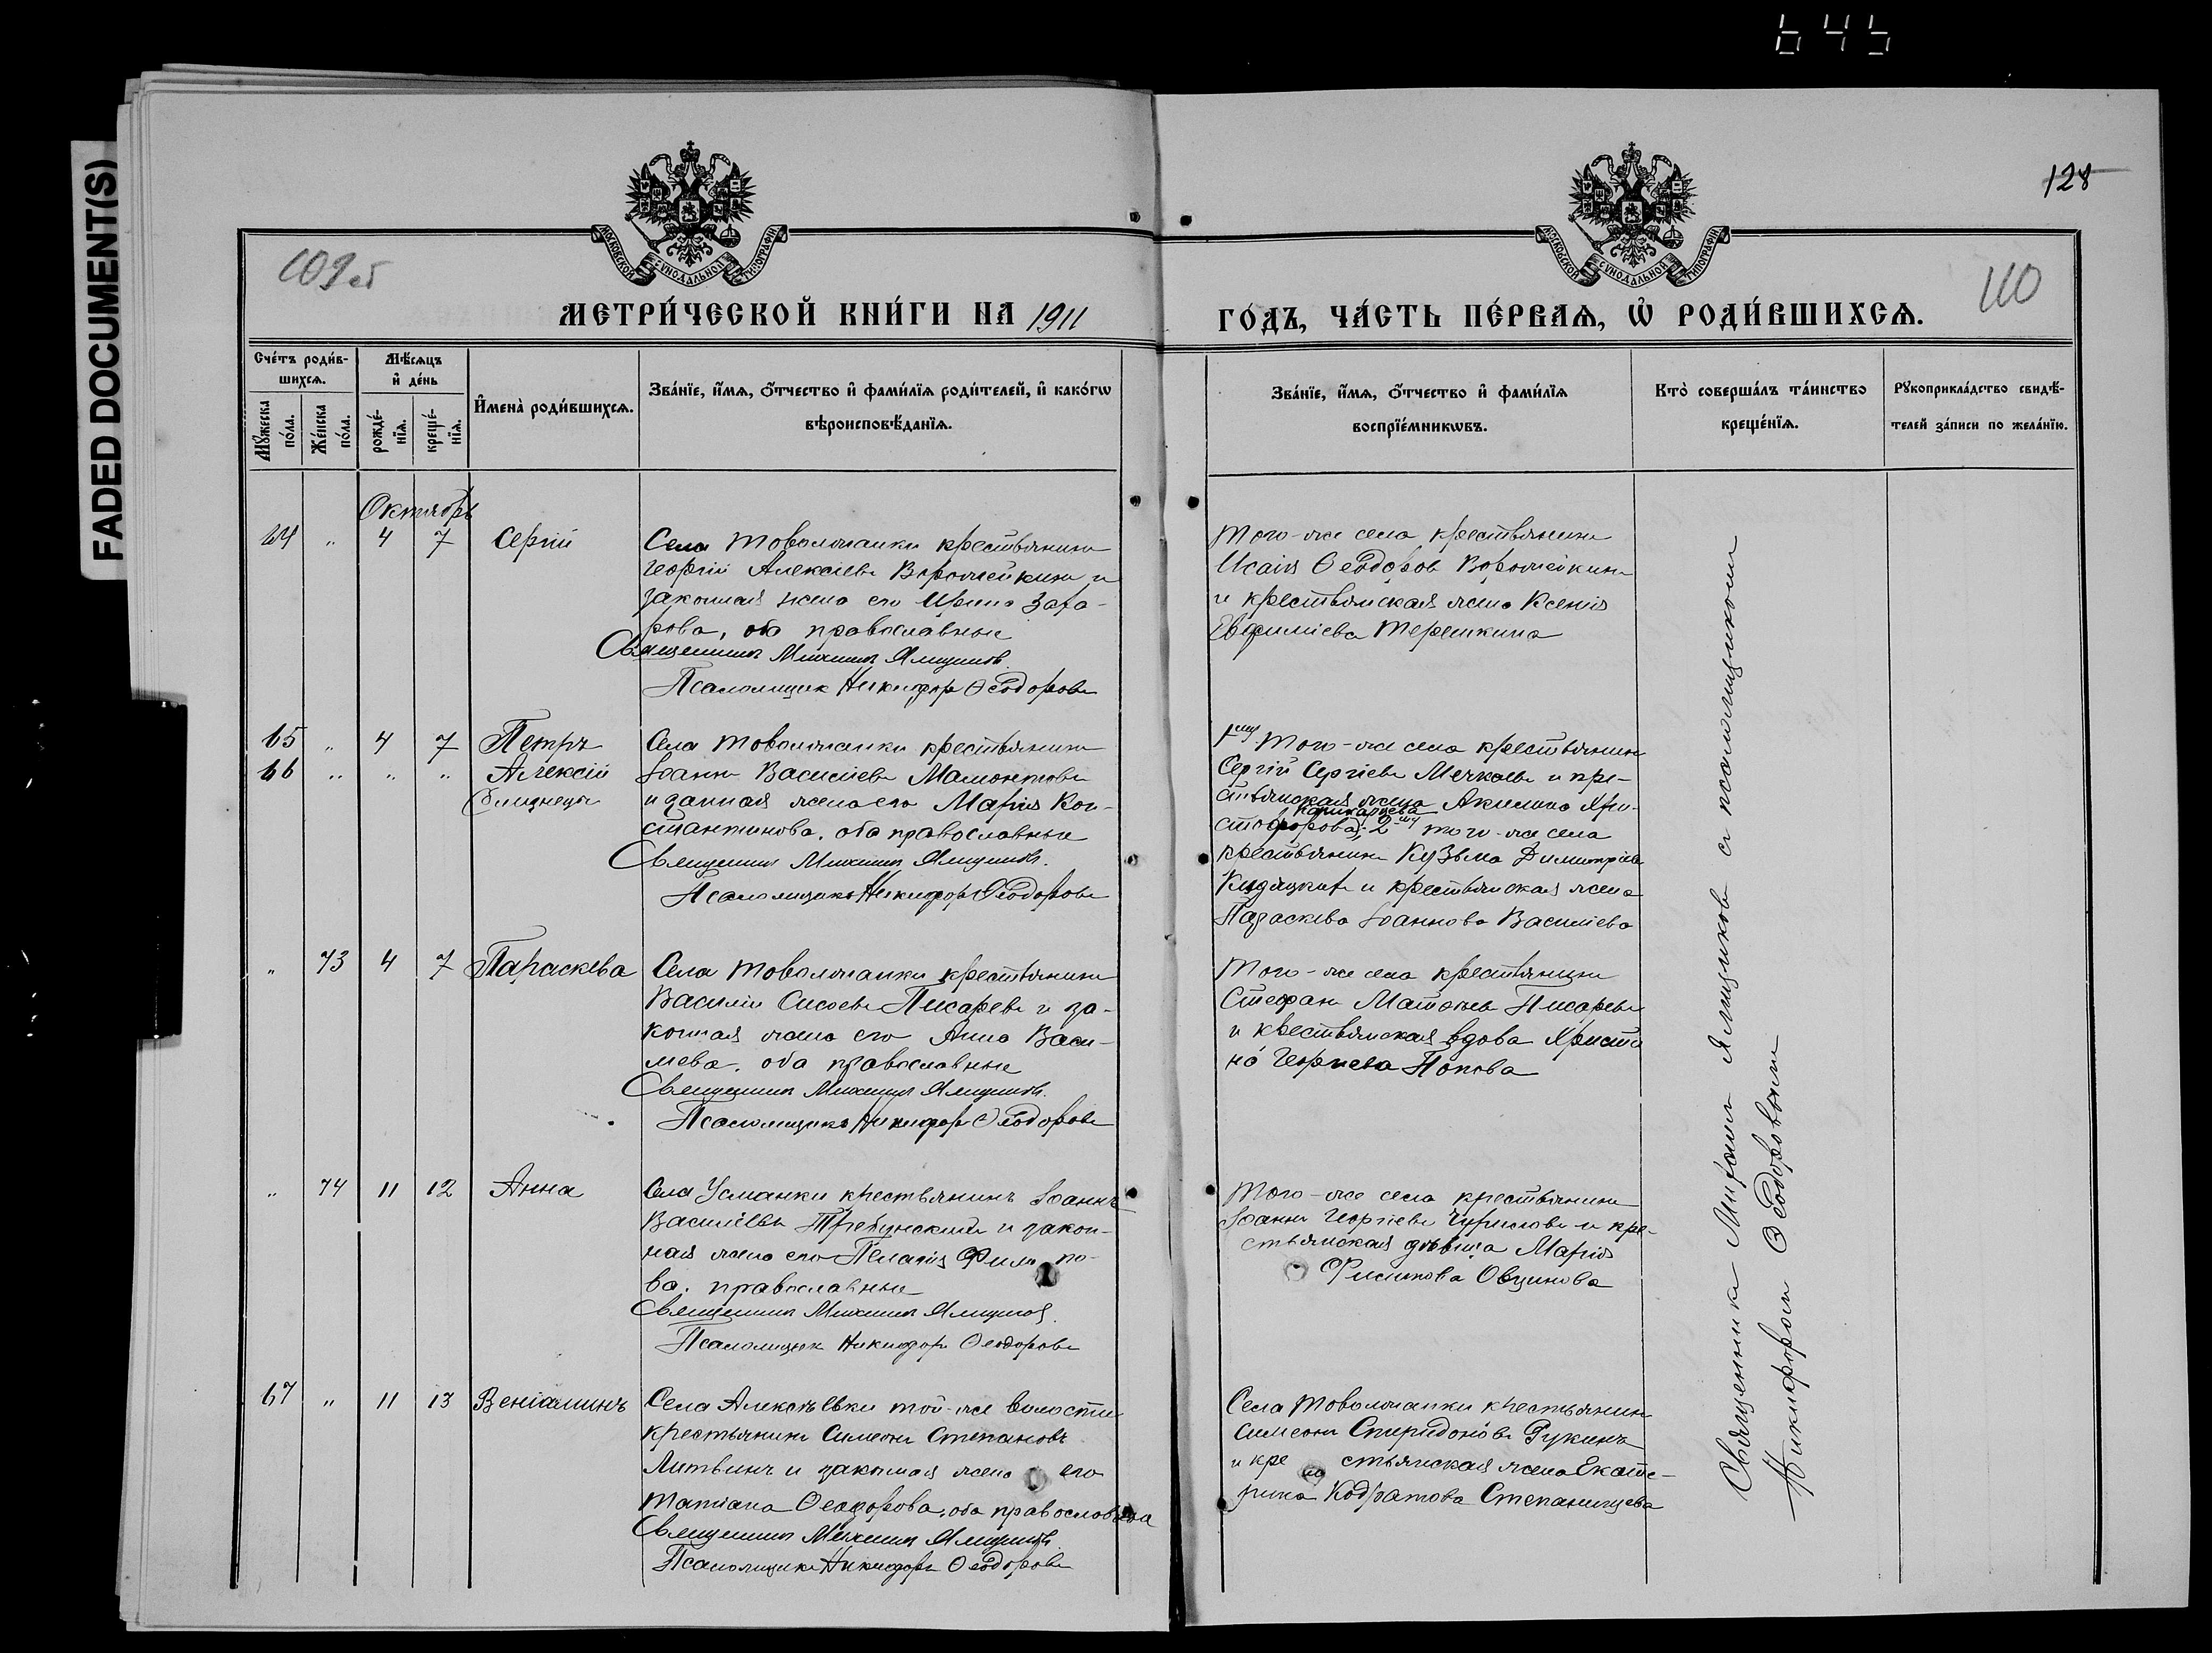 645
FADED DOCUMENT(S)
128
109 об
110
МОСКОВСКОЙ СѴНОДАЛЬНОЙ ТИПОГРАФІИ
МОСКОВСКОЙ СѴНОДАЛЬНОЙ ТИПОГРАФІИ
МЕТРИ́ЧЕСКОЙ КНИ́ГИ НА 1911
ГО́ДЪ, ЧА́СТЬ ПЕ́РВАѦ, Ѡ҆ РОДИ́ВШИХСѦ.
Сче́тъ роди́в-
шихсѧ.
Мꙋ́жеска по́ла.
Же́нска по́ла.
Мѣ́сѧцъ
и҆ де́нь
рожде́-нїѧ.
креще́-нїѧ.
И҆мена̀ роди́вшихсѧ.
Зва́нїе, и҆́мѧ, ѻ҆́тчество и҆ фами́лїѧ роди́телей, и҆ како́гѡ
вѣроисповѣ́данїѧ.
Зва́нїе, и҆́мѧ, ѻ҆́тчество и҆ фами́лїѧ
воспрїе́мникѡвъ.
Кто̀ соверша́лъ та́инство
креще́нїѧ.
Рꙋкоприкла́дство свидѣ́-
телей за́писи по жела́нїю.
Октябрь
64 " 4 7 Сергій
Села Товолжанки крестьянинъ
Георгій Алексіевъ Ворошейкинъ и
законная жена его Ирина Заха-
рова, оба православные
Священникъ Михаилъ Ямщиков.
Псаломщик Никифор Ѳеодоровъ
Того-же села крестьянинъ
Исаія Ѳеодоров Ворошейкинъ
и крестьянская жена Ксенія
Евфиміева Терешкина
65 " 4 7 Петръ
66 " " " Алексій
близнецы
Села Товолжанки крестьянинъ
Іоаннъ Василіевъ Мамонтовъ
и законная жена его Марія Кон-
стантинова, оба православные
Священникъ Михаилъ Ямщиковъ.
Псаломщикъ Никифоръ Ѳеодоровъ
1му Того-же села крестьянинъ
Сергій Сергіевъ Мечкаевъ и кре-
стьянская жена Акилина Хри-
стофорова; 2му того-же села
крестьянинъ Кузьма Димитріевъ
и крестьянская жена
Параскева Іоаннова Василіева
" 73 4 7 Параскева
Села Товолжанки крестьянинъ
Василій Сисоевъ Писаревъ и за-
конная жена его Анна Васи-
лиева, оба православные
Священникъ Михаилъ Ямщиковъ.
Псаломщикъ Никифоръ Ѳеодоровъ
Того-же села крестьянинъ
Стефанъ Матвѣевъ Писаревъ
и крестьянская вдова Христи
на Георгіева Попова
" 74 11 12 Анна
Села Усманки крестьянинъ Іоаннъ
Василіевъ Требунскій и закон-
ная жена его Пелагія Филиппо-
ва, православные
Священникъ Михаилъ Ямщиков.
Псаломщик Никифоръ Ѳеодоровъ
Того-же села крестьянинъ
Іоаннъ Георгіевъ Чуриловъ и кре-
стьянская дѣвица Марія
Филипова Овцинова
67 " 11 13 Веніаминъ
Села Алексѣевки той-же волости
крестьянинъ Симеонъ Степановъ
Литвинъ и законная жена его
Татіана Ѳеодорова, оба православные
Священникъ Михаилъ Ямщиковъ.
Псаломщикъ Никифоръ Ѳеодоровъ
Села Товолжанки крестьянинъ
Симеонъ Спиридоновъ Рукинъ
и крестьянская жена Екате-
рина Кодратова Степанищева
Священникъ Михаилъ Ямщиковъ съ псаломщикомъ
Никифоромъ Ѳеодоровымъ